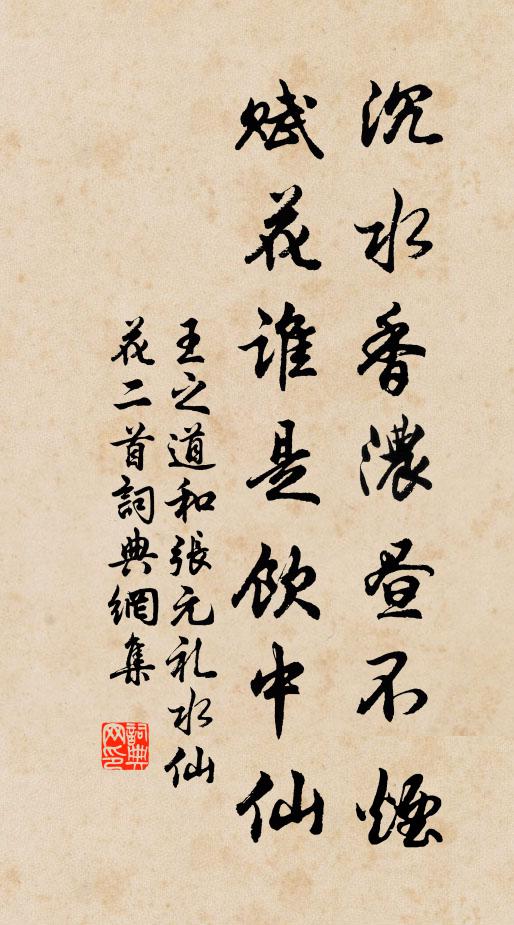 沉水香濃昼不煙
赋花谁是飲中仙
王之道和張元礼水仙
花二首詞典網集
詞典
网印